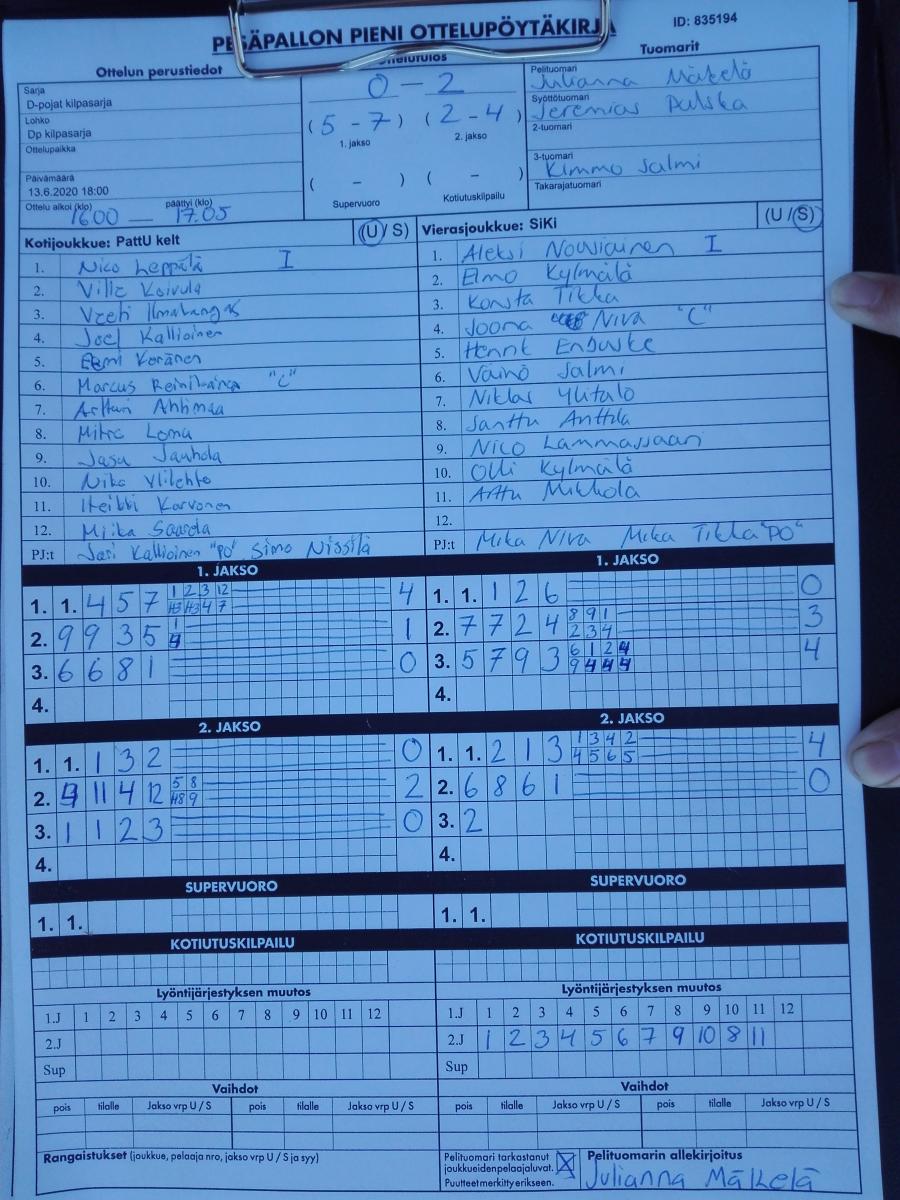 PESÄPALLON PIENI OTTELUPÖYTÄKIRJA
ID: 835194
Ottelun perustiedot
Ottelutulos
Tuomarit
Sarja
D-pojat kilpasarja
Lohko
Dp kilpasarja
Ottelupaikka
Päivämäärä
13.6.2020 18:00
Ottelu alkoi (klo) päättyi (klo)
1600 — 17.05
0 - 2
(5 - 7) (2 - 4)
1. jakso 2. jakso
( - ) ( - )
Supervuoro Kotiutuskilpailu
Pelituomari
Julianna Mäkelä
Syöttötuomari
Jeremias Palska
2-tuomari
3-tuomari
Kimmo Salmi
Takarajatuomari
Kotijoukkue: PattU kelt (U / S)
1. Nico Leppälä I
2. Ville Koivula
3. Veeti Ilmalangas
4. Joel Kallioinen
5. Eemi Koränen
6. Marcus "C"
7. Artturi Ahlmaa
8. Loma
9. Jasu Jauhola
10. Niko Ylilehto
11. Heikki Karvonen
12. Miika Saarela
PJ:t Jari Kallioinen "PO" Simo Nissilä
Vierasjoukkue: SiKi (U / S)
1. Aleksi Nousiainen I
2. Elmo Kylmälä
3. Konsta Tikka
4. Joona Niva "C"
5. Henrik Enbuske
6. Väinö Salmi
7. Niklas Ylitalo
8. Santtu Anttila
9. Nico Lammassaari
10. Olli Kylmälä
11. Arttu Mikkola
12.
PJ:t Mika Niva Mika Tikka "PO"
1. JAKSO
1. 1. 4 5 7 1 2 3 12 4
4 7
2. 9 9 3 5 1 1
3. 6 6 8 1 0
4.
1. JAKSO
1. 1. 1 2 6 0
2. 7 7 2 4 8 9 1 3
2 3 4
3. 5 7 9 3 6 1 2 4 4
9 4 4 4
4.
2. JAKSO
1. 1. 1 3 2 0
2. 11 4 12 5 8 2
9
3. 1 1 2 3 0
4.
2. JAKSO
1. 1. 2 1 3 1 3 4 2 4
4 5 6 5
2. 6 8 6 1 0
3. 2
4.
SUPERVUORO
1. 1.
SUPERVUORO
1. 1.
KOTIUTUSKILPAILU
KOTIUTUSKILPAILU
Lyöntijärjestyksen muutos
1.J 1 2 3 4 5 6 7 8 9 10 11 12
2.J
Sup
Lyöntijärjestyksen muutos
1.J 1 2 3 4 5 6 7 8 9 10 11 12
2.J 1 2 3 4 5 6 7 9 10 8 11
Sup
Vaihdot
pois tilalle Jakso vrp U / S pois tilalle Jakso vrp U / S
Vaihdot
pois tilalle Jakso vrp U / S pois tilalle Jakso vrp U / S
Rangaistukset (joukkue, pelaaja nro, jakso vrp U / S ja syy)
Pelituomari tarkastanut
joukkueiden pelaajaluvat.
Puutteet merkitty erikseen.
Pelituomarin allekirjoitus
Julianna Mäkelä